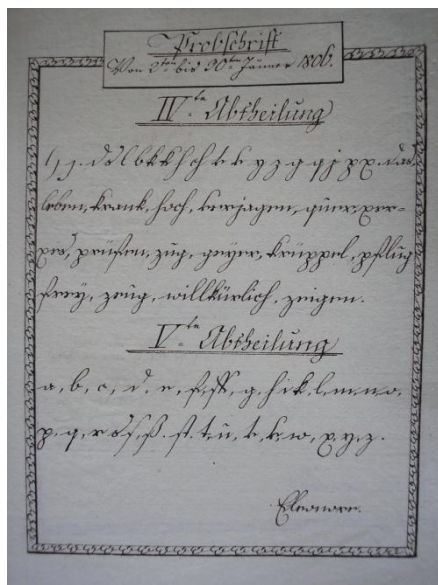 Probschrift
Von 2ten bis 30ten Jänner 1806.
IVte Abtheilung
leben, krank, hoch, verjagen, quer, per-
prüfen, zug, geyer, krüppel, pflug
frey, zeug, willkürlich, zeigen.
Vte Abtheilung
a, b, c, d, e, f, ff, g, h, i, k, l, m, n, o,
p, q, r, s, ſ, ß, st, t, u, v, w, x, y, z.
Eleonore.